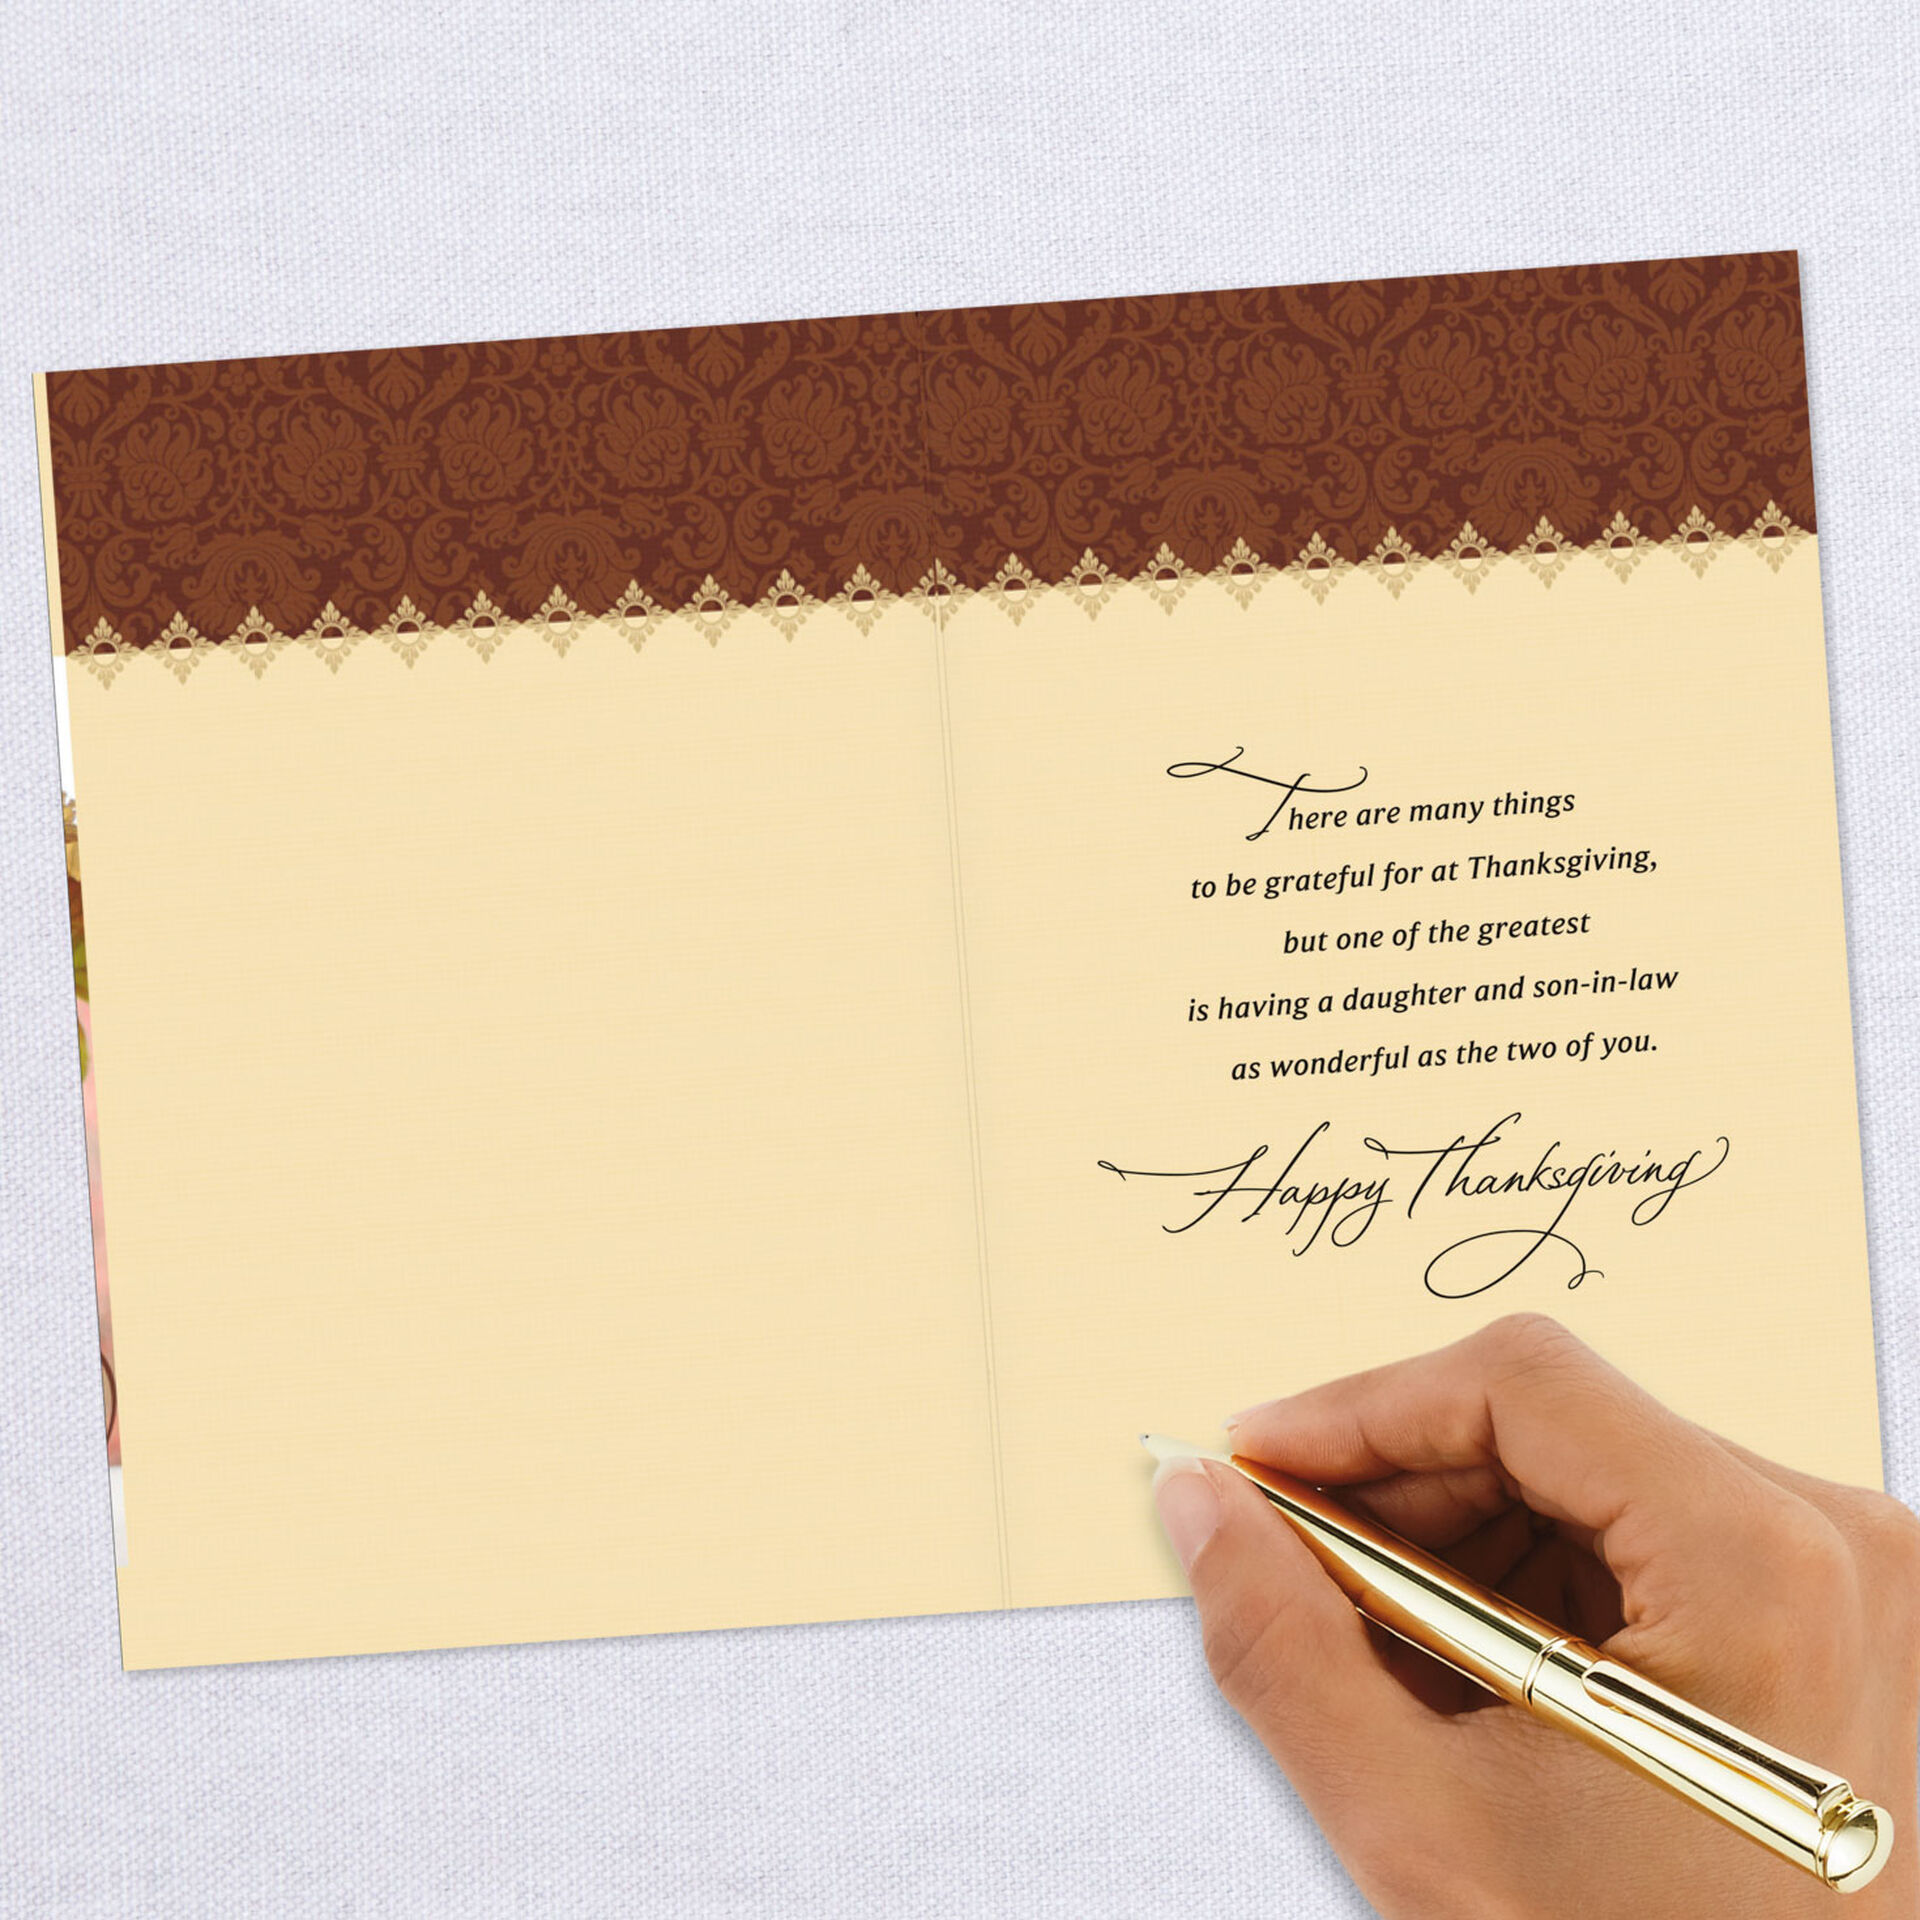 There are many things
to be grateful for at Thanksgiving,
but one of the greatest
is having a daughter and son-in-law
as wonderful as the two of you.
Happy Thanksgiving